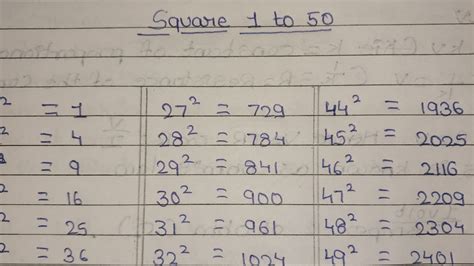 Square 1 to 50
² = 1 27² = 729 44² = 1936
² = 4 28² = 784 45² = 2025
² = 9 29² = 841 46² = 2116
² = 16 30² = 900 47² = 2209
² = 25 31² = 961 48² = 2304
² = 36 32² = 1024 49² = 2401